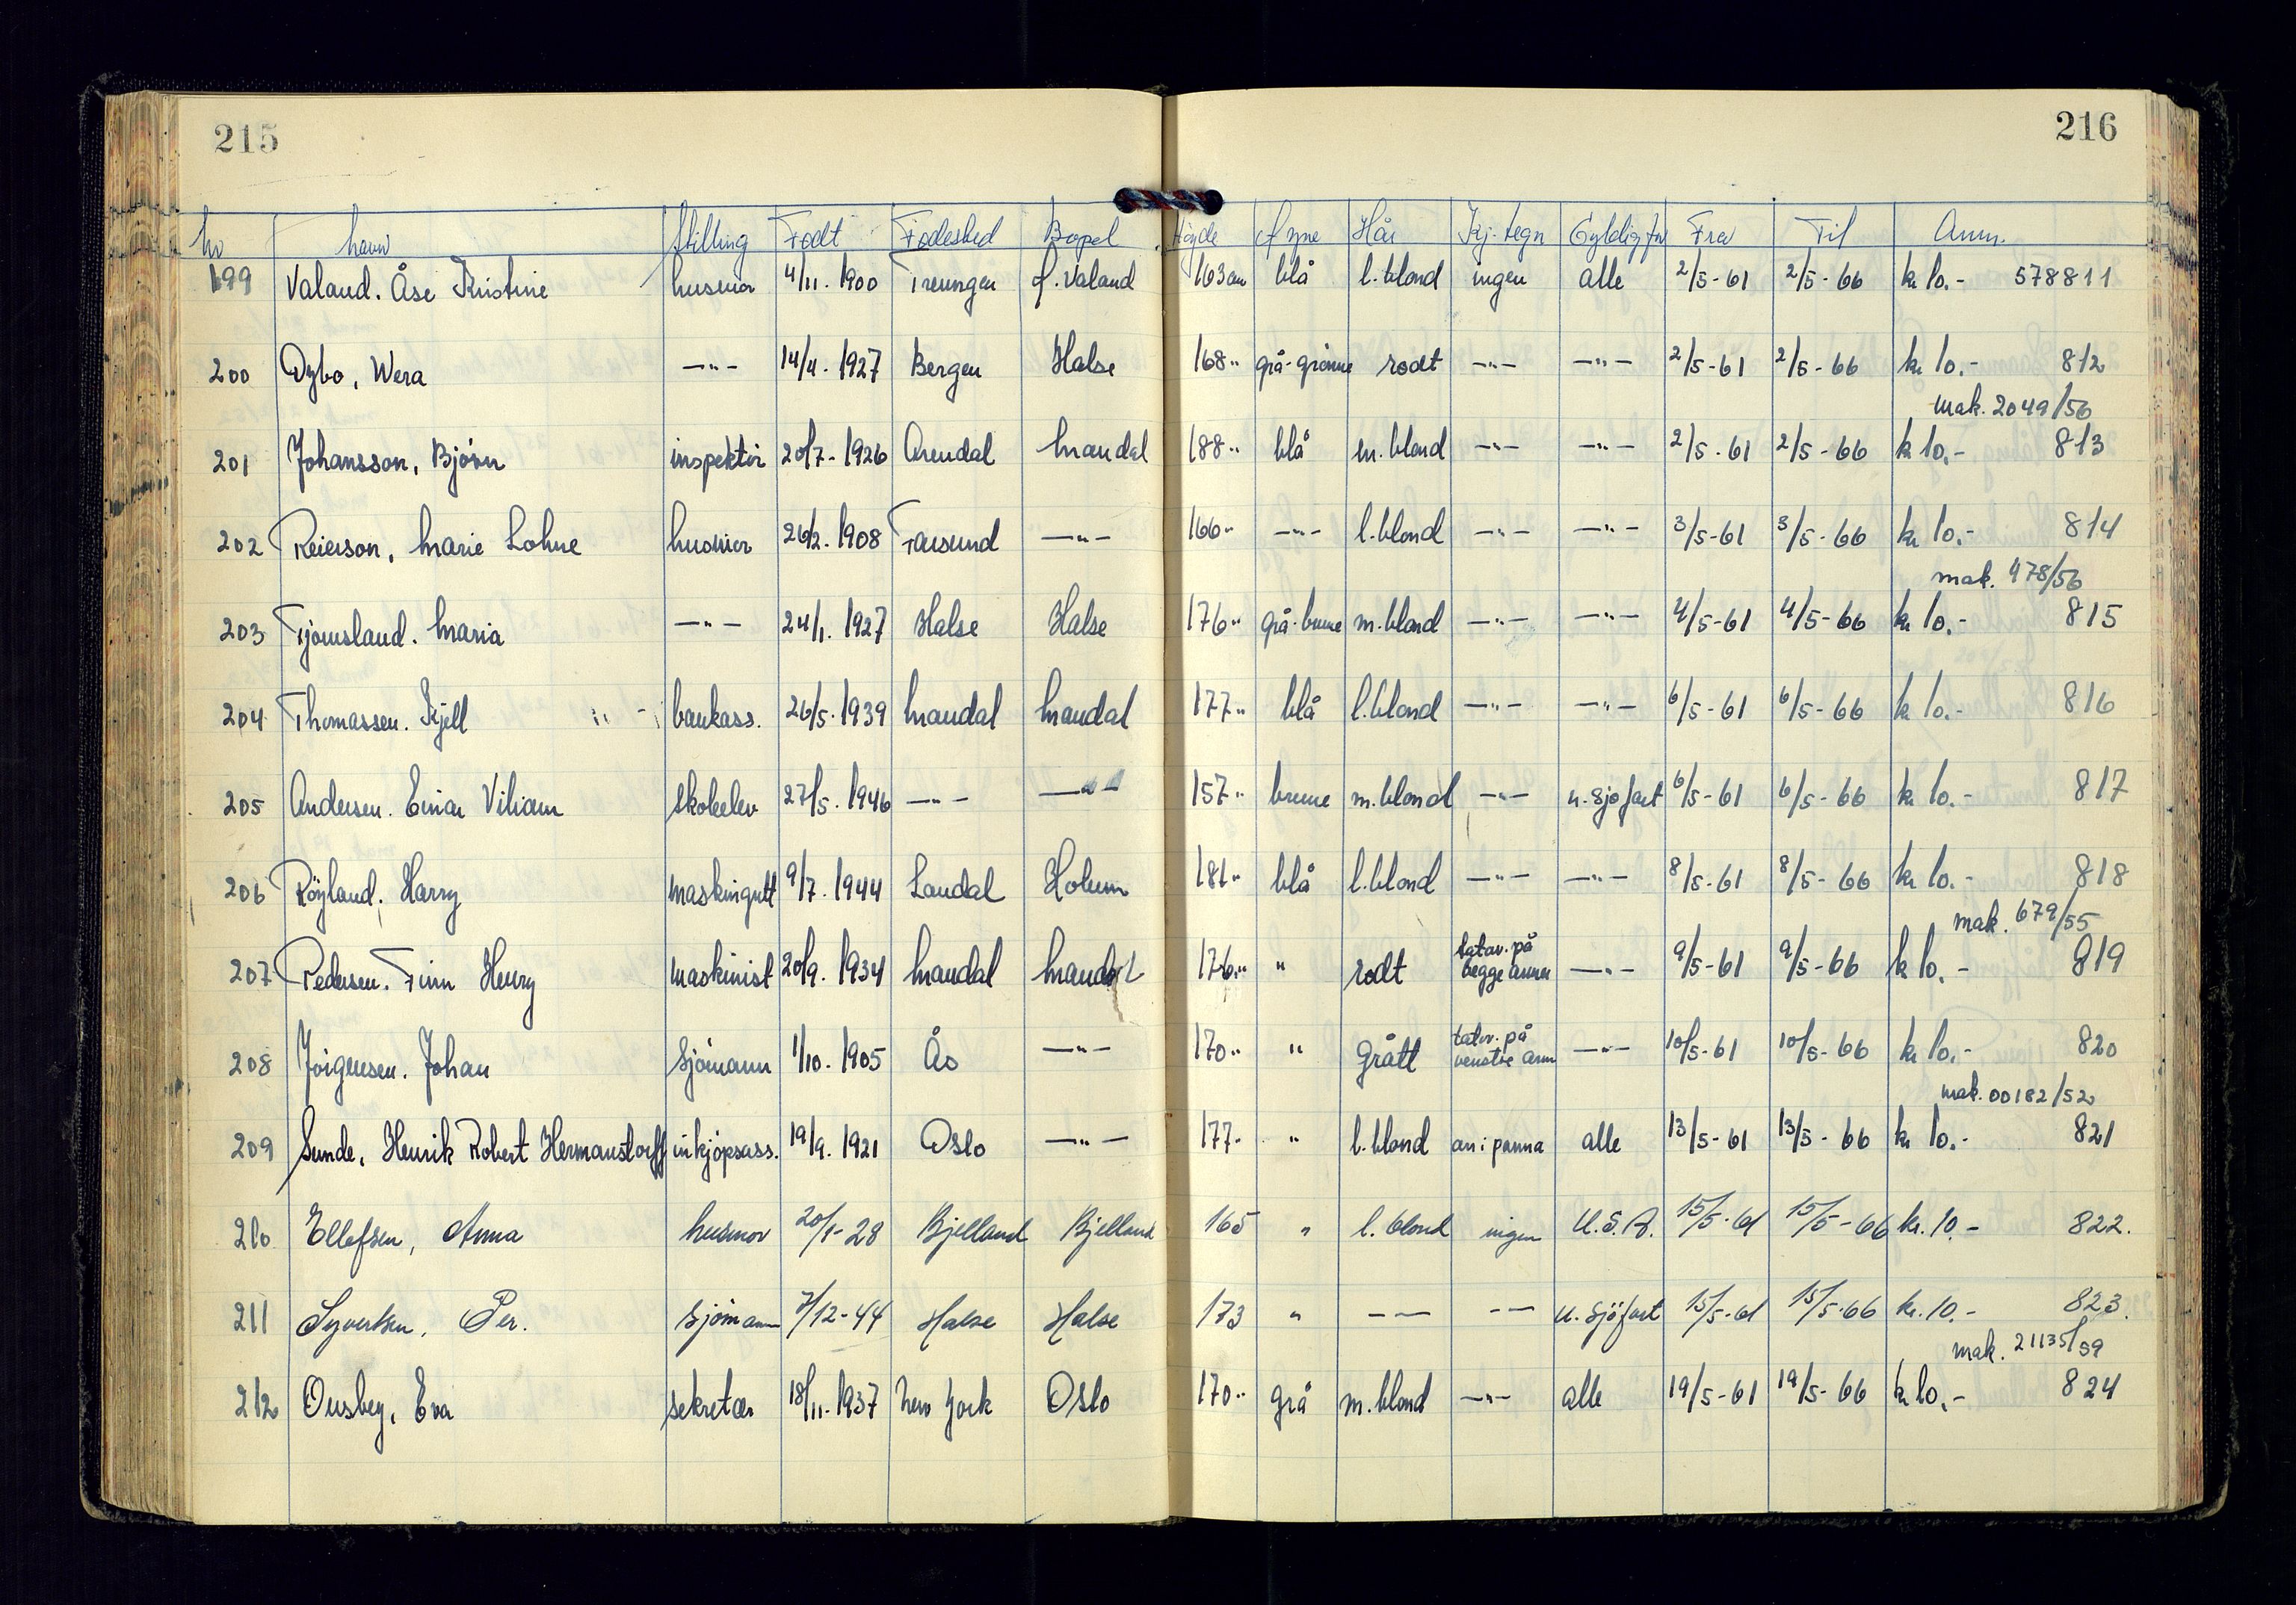 215
216
Nr Navn Stilling Født Fødested Bopel Høyde Øyne Hår Kj. tegn Gyldig for Fra Til Anm.
199 Valand. Åse Kristine husmor 4/11. 1900 Treungen Valand 163 cm blå l. blond ingen alle 2/5-61 2/5-66 kr 10.- 578811
200 Dybo, Wera —"— 14/4. 1927 Bergen Halse 168" grå-grønne rødt —"— —"— 2/5-61 2/5-66 kr 10.- 812
mak. 2049/56
201 Johansson, Bjørn inspektør 20/7-1926 Arendal Mandal 188" blå m. blond —"— —"— 2/5-61 2/5-66 kr 10.- 813
202 Reierson, Marie Lohne husmor 26/2. 1908 Farsund —"— 166" —"— l. blond —"— —"— 3/5-61 3/5-66 kr 10.- 814
mak. 478/56
203 Tjomsland. Maria —"— 24/1. 1927 Halse Halse 176" grå-brune m. blond —"— —"— 4/5-61 4/5-66 kr 10.- 815
204 Thomassen. Kjell bankass. 26/5. 1939 Mandal Mandal 177" blå l. blond —"— —"— 6/5-61 6/5-66 kr 10.- 816
205 Andersen. Einar Viliam skoleelev 27/5. 1946 —"— —"— 157" brune m. blond —"— u. sjøfart 6/5-61 6/5-66 kr 10.- 817
206 Røyland. Harry maskingutt 9/7. 1944 Laudal Holum 181" blå l. blond —"— —"— 8/5-61 8/5-66 kr 10.- 818
mak. 679/55
207 Pedersen. Finn Henry maskinist 20/9. 1934 Mandal Mandal 176" " rødt tatov. på begge armer —"— 9/5-61 9/5-66 kr 10.- 819
208 Jørgensen. Johan Sjømann 1/10. 1905 Ås —"— 170" " grått tatov. på venstre arm —"— 10/5-61 10/5-66 kr 10.- 820
mak. 00182/52
209 Sunde, Henrik Robert Hermanstorff innkjøpsass. 19/9. 1921 Oslo —"— 177" " l. blond arr i panna alle 13/5-61 13/5-66 kr 10.- 821
210 Ellefsen, Anna husmor 20/1-28 Bjelland Bjelland 165 " l. blond ingen U.S.A. 15/5-61 15/5-66 kr. 10.- 822.
211 Syvertsen, Per. Sjømann 7/12-44 Halse Halse 173 " — — — — u. sjøfart 15/5-61 15/5-66 kr. 10.- 823.
mak. 21135/59
212 Ousbey, Eva sekretær 18/11. 1937 New York Oslo 170" grå m. blond —"— alle 19/5-61 19/5-66 kr 10.- 824